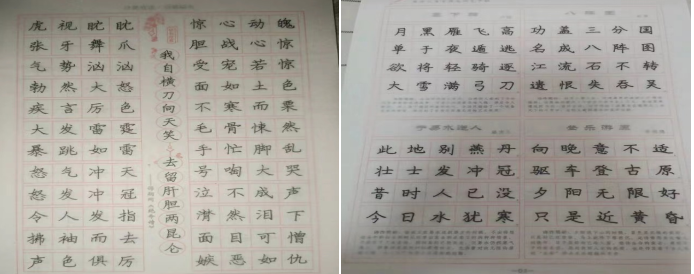 虎视眈眈
张牙舞爪
气势汹汹
勃然大怒
疾言厉色
大发雷霆
暴跳如雷
怒气冲天
怒发冲冠
令人发指
拂袖而去
声色俱厉
我自横刀向天笑
去留肝胆两昆仑
惊心动魄
胆战心惊
受宠若惊
面如土色
不寒而栗
毛骨悚然
手忙脚乱
号啕大哭
泣不成声
潸然泪下
面目可憎
嫉恶如仇
月黑雁飞高
单于夜遁逃
欲将轻骑逐
大雪满弓刀
功盖三分国
名成八阵图
江流石不转
遗恨失吞吴
此地别燕丹
壮士发冲冠
昔时人已没
今日水犹寒
向晚意不适
驱车登古原
夕阳无限好
只是近黄昏